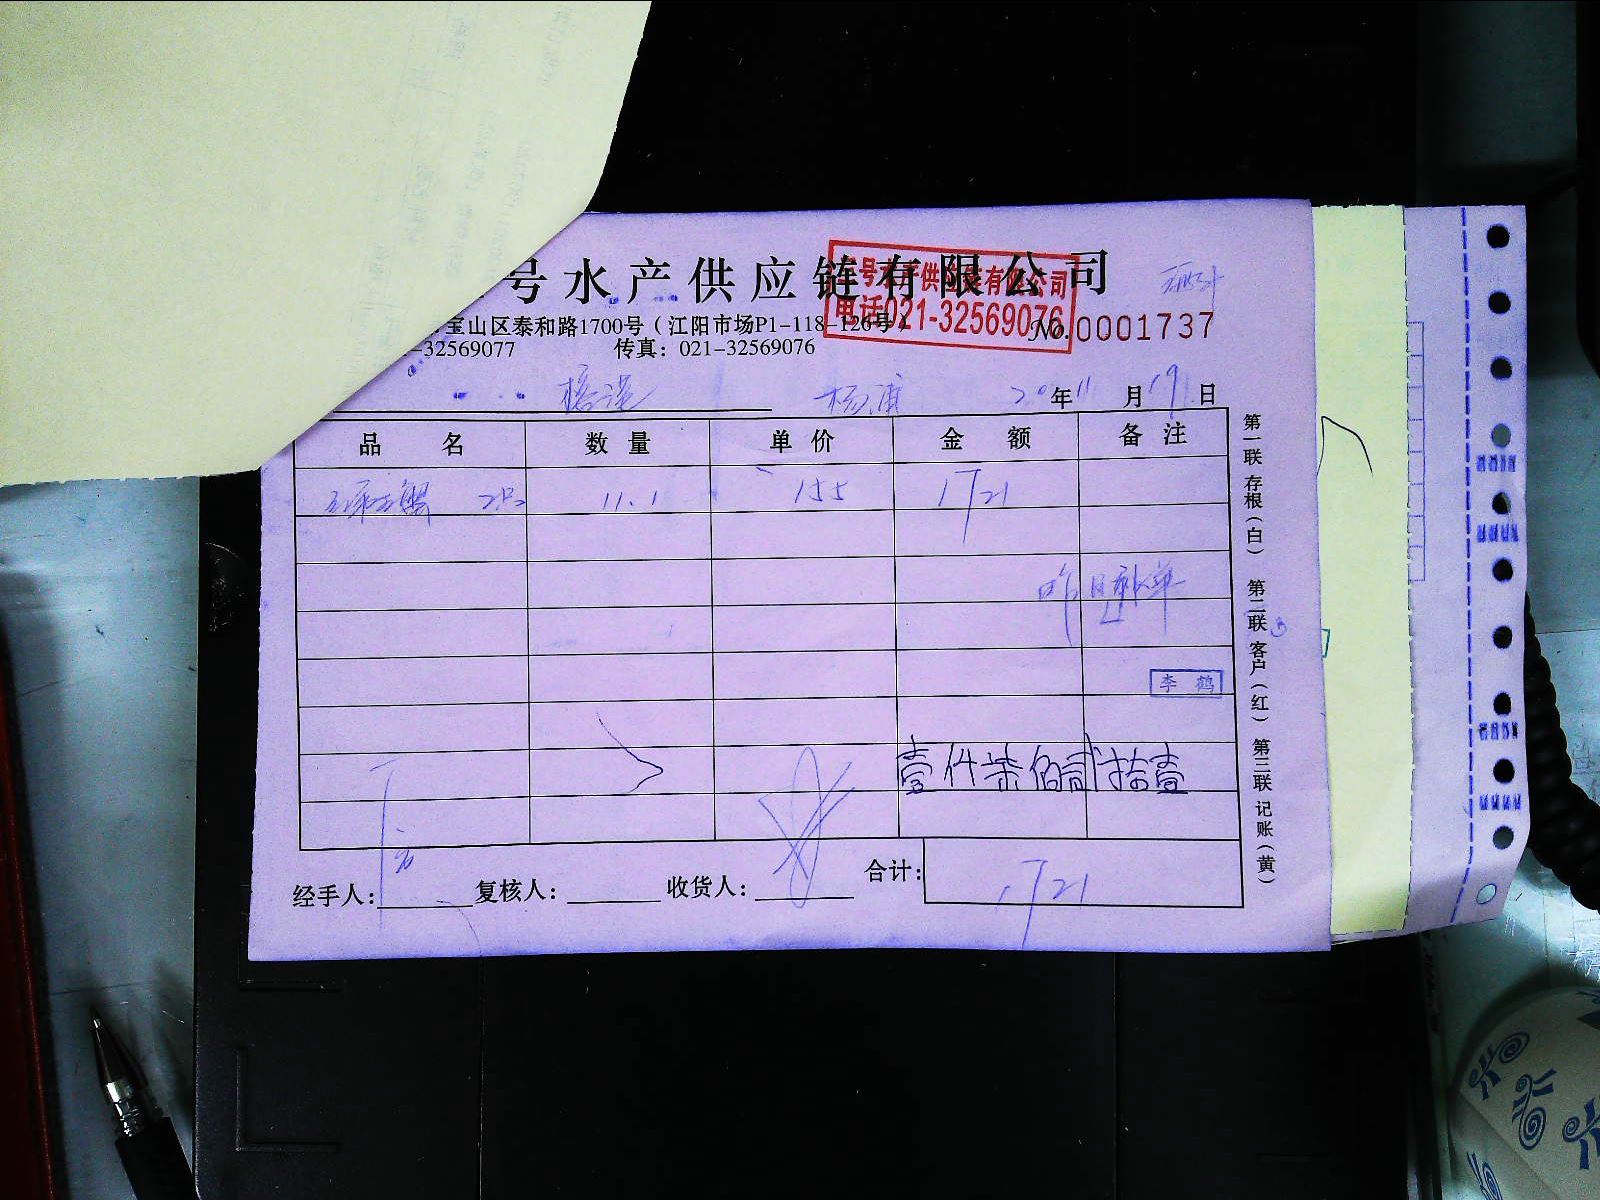 号水产供应链有限公司
号水产供应链有限公司
电话021-32569076
宝山区泰和路1700号（江阳市场P1-118-126号）
No.0001737
-32569077 传真：021-32569076
杨浦 20年11月19日
品名 数量 单价 金额 备注
2只 11.1 155 1721
昨日
李鹤
壹仟柒佰贰拾壹
经手人： 复核人： 收货人： 合计： 1721
第一联存根（白） 第二联客户（红） 第三联记账（黄）